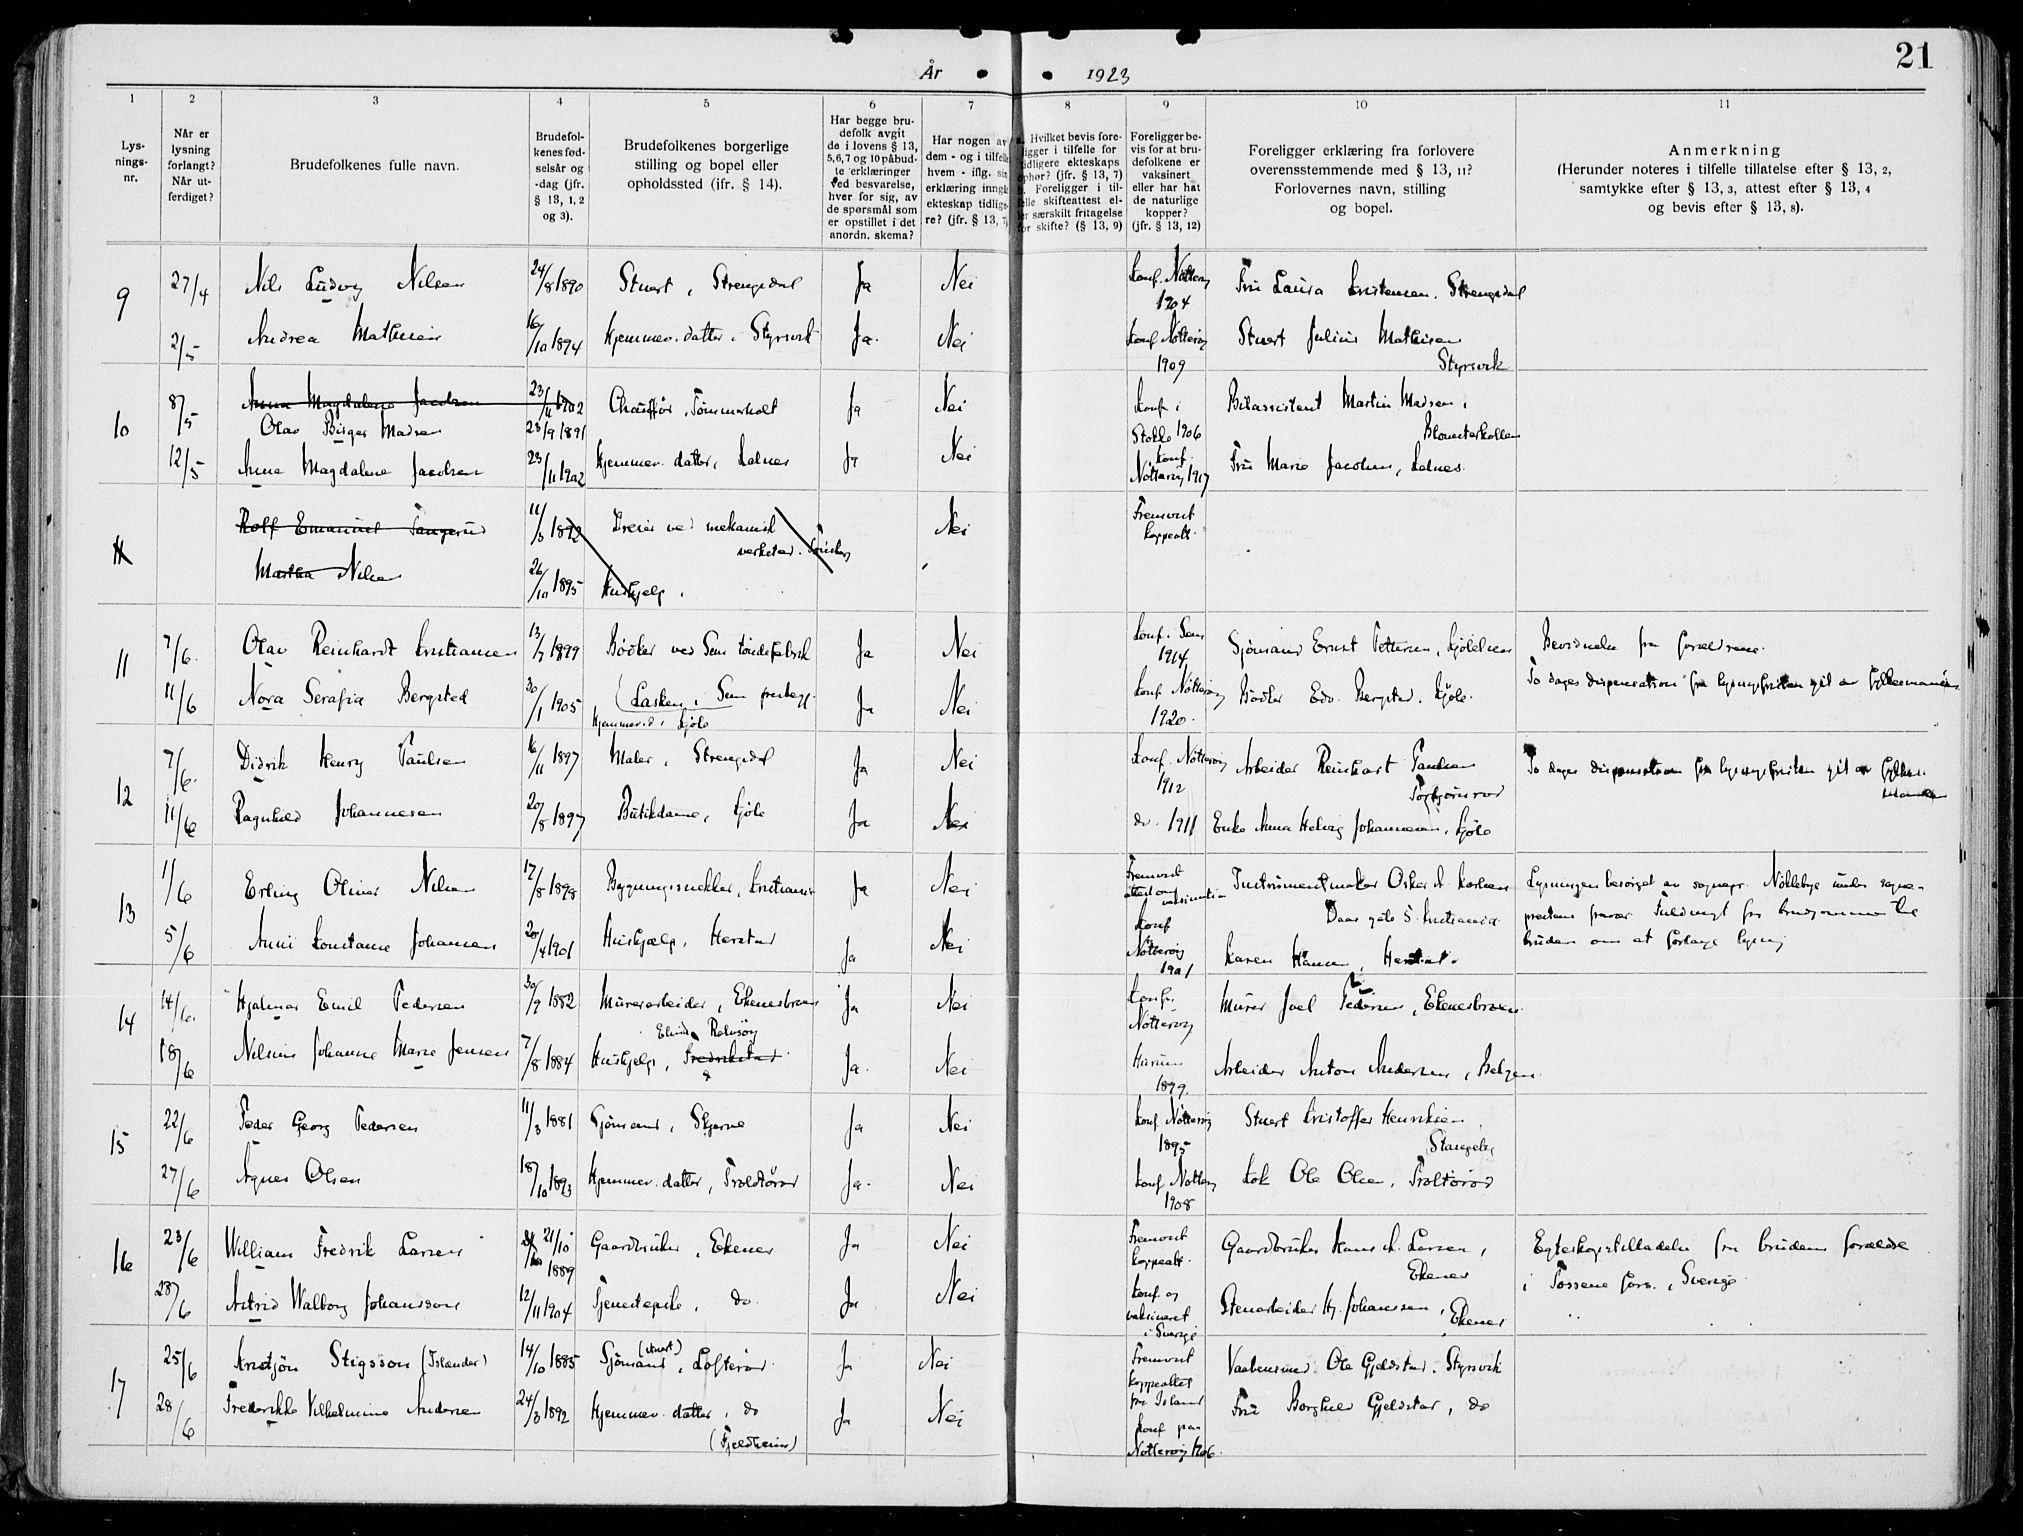 21
År 1923
1 2 3 4 5 6 7 8 9 10 11
Lysningsnr.
Når er lysning forlangt? Når utferdiget?
Brudefolkenes fulle navn.
Brudefolkenes fødselsår og -dag (jfr. § 13, 1, 2 og 3).
Brudefolkenes borgerlige stilling og bopel eller opholdssted (ifr. § 14).
Har begge brudefolk avgit de i lovens § 13, 5, 6, 7 og 10 påbudte erklæringer ved besvarelse, hver for sig, av de spørsmål som er opstillet i det anordn. skema?
Har nogen av dem - og i tilfelle hvem - iflg. sin erklæring inngåt ekteskap tidligere? (jfr. § 13, 7)
a. Hvilket bevis foreligger i tilfelle for tidligere ekteskaps ophør? (jfr. § 13, 7) b. Foreligger i tilfelle skifteattest eller særskilt fritagelse for skifte? (§ 13, 9)
Foreligger bevis for at brudefolkene er vaksinert eller har hat de naturlige kopper? (jfr. § 13, 12)
Foreligger erklæring fra forlovere overensstemmende med § 13, 11? Forlovernes navn, stilling og bopel.
Anmerkning (Herunder noteres i tilfelle tillatelse efter § 13, 2, samtykke efter § 13, 3, attest efter § 13, 4 og bevis efter § 13, 8).
9 27/4 Nils Ludvig Nilsen 24/8 1890 Stuert, Strengsdal Ja Nei Konf. Nøtterøy 1904 Fru Laura Kristensen. Strengsdal
2/5 Andrea Mathisen 16/10 1894 Hjemmev. datter, Styrsvik Ja. Nei Konf Nøtterøy 1909 Stuert Julius Mathisen Styrsvik
10 8/5 Anna Magdalene Jacobsen 23/11 1902
Olav Birger Madsen 23/9 1891 Chauffør, Tømmerholt Ja Nei Konf i Stokke 1906 Bilassistent Martin Madsen,
12/5 Anna Magdalene Jacobsen 23/11 1902 Hjemmev. datter, Ja Nei Konf. Nøtterøy 1917 Fru Marie Jacobsen,
11 Rolf Emanuel 11/3 1892 Dreier ved mekanisk verksted. Tønsberg Nei Fremvist koppeatt.
Martha Nilsen 26/10 1895 Hushjelp.
11 7/6. Olav Reinhardt Kristiansen 13/7 1899 Bødker ved Sem tøndefabrik Ja Nei Konf. i Sem 1914 Sjømand Ernst Pettersen, Bevidnelse fra forældrene.
11/6 Nora Serafia Bergsted 30/1 1905 Hjemmev. i Kjøle Ja Nei Konf Nøtterøy 1920. Bødker Edv. Bergsted, Kjøle. To dages dispensation fra lysningsfristen git av fylkesmannen
12 7/6. Didrik Henry Paulsen 16/11 1897 Maler, Strengsdal Ja Nei Konf. Nøtterøy 1912 Arbeider Reinhart Paulsen To dages dispensation fra lysningsfristen git av fylkesmannen
11/6 Ragnhild Johannesen 20/8 1897 Butikdame, Kjøle Ja Nei do. 1911 Enke Anna Helvig Johannesen, Kjøle
13 1/6 Erling Oliver Nilsen 17/8 1898 Bygningssnekker, Kristiania Ja Nei Fremvist attest om vaksination Instrumentmaker Oskar A. Karlsen Daas gate 5 Kristiania Lysningen besørget av sognepr. Nøklebye under sogneprestens fravær. Fuldmagt fra brudgommen til bruden om at forlange lysning
5/6 Anni Konstanse Johansen 20/4 1901 Hushjælp, Herstad Ja Nei Konf Nøtterøy Karen Hansen, Herstad.
14 14/6. Hjalmar Emil Pedersen 30/9 1882 Murerarbeider, Ekenesbroen Ja Nei Konf. Nøtterøy Murer Joel Pedersen, Ekenesbroen.
18/6 Nilsine Johanne Marie Jensen 7/8 1884 Hushjelp, Fredrikstad Ja. Nei Hurum 1899. Arbeider Anton Andersen,
15 22/6 Peder Georg Pedersen 11/3 1881 Sjømand, Skjerve Ja Nei Konf Nøtterøy 1895 Stuert Kristoffer Henriksen,
27/6 Agnes Olsen 18/10 1893 Hjemmev. datter, Ja. Nei Konf Nøtterøy 1908 Kok Ole Olsen,
16 23/6 William Fredrik Larsen 21/10 1889 Gaardbruker, Ekenes Ja Nei Fremvist koppeatt. Gaardbruker Hans A. Larsen, Ekenes Egteskapstilladelse fra brudens forældre i Tossene fors., Sverige.
28/6 Astrid Walborg Johansson 12/11 1904 Tjenestepike, do. Ja Nei Konf og vaksineret i Sverige Stenarbeider Hj. Johanssen, Ekenes
17 25/6 Stigsson (Islænder) 14/10 1885 Sjømand (stuert), Lofterød. Ja Nei Fremvist koppeattest fra Island Ole Gjeldstad. Styrsvik
28/6 Frederikke Vilhelmine Andersen 24/3 1892 Hjemmev. datter, do (Fjeldheim) Ja Nei Konf paa Nøtterøy 1906. Fru Borghild Gjeldstad, do